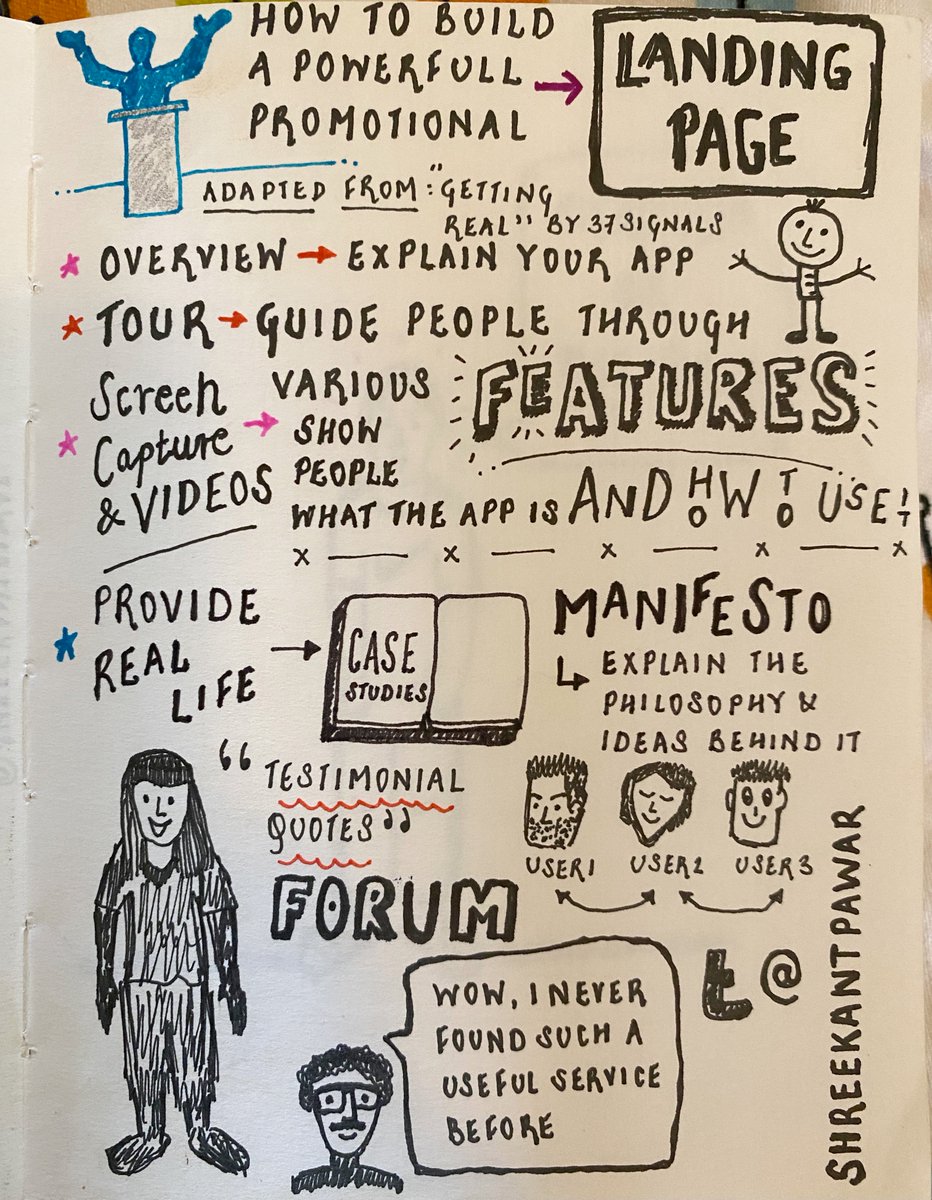 HOW TO BUILD
A POWERFULL
PROMOTIONAL
LANDING
PAGE
ADAPTED FROM: "GETTING
REAL" BY 37SIGNALS
OVERVIEW → EXPLAIN YOUR APP
TOUR → GUIDE PEOPLE THROUGH
VARIOUS
FEATURES
Screen
Capture
& VIDEOS
SHOW
PEOPLE
WHAT THE APP IS AND HOW TO USE IT
PROVIDE
REAL
LIFE
CASE
STUDIES
MANIFESTO
EXPLAIN THE
PHILOSOPHY &
IDEAS BEHIND IT
"TESTIMONIAL
QUOTES"
USER1 USER2 USER3
FORUM
WOW, I NEVER
FOUND SUCH A
USEFUL SERVICE
BEFORE
t@
SHREEKANTPAWAR